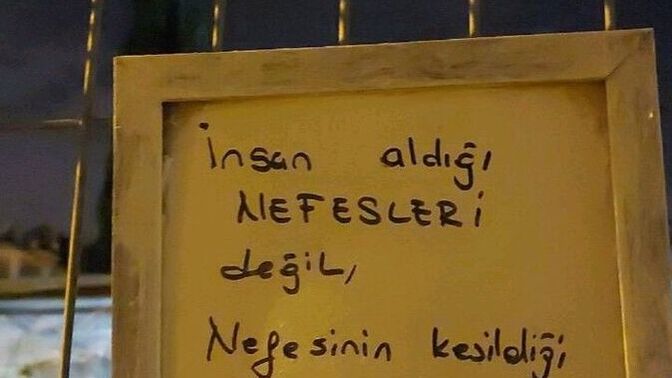 İnsan aldığı
NEFESLERİ
değiL,
Nefesinin kesildiği